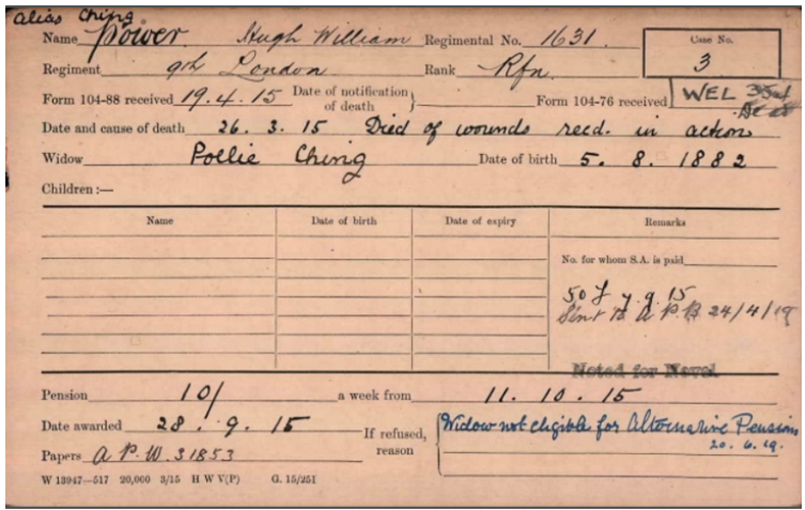 alias Ching
Name Power Hugh William Regimental No. 1631. Case No.
3
Regiment 9th London Rank Rfn.
Form 104-88 received 19.4.15 Date of notification of death Form 104-76 received WEL
Date and cause of death 26.3.15 Died of wounds recd. in action
Widow Pollie Ching Date of birth 5.8.1882
Children :—
Name Date of birth Date of expiry Remarks
No. for whom S.A. is paid
50 f 7.9.15
Sent to A P B 24/4/19
Noted for Novel
Pension 10/ a week from 11.10.15
Date awarded 28.9.15 If refused, reason Widow not eligible for Alternative Pension
20.6.19.
Papers A P.W. 31853
W 13947—517 20,000 3/15 H W V(P) G. 15/251